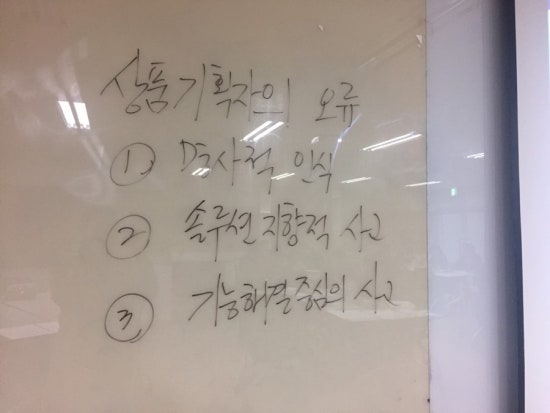 상품기획자의 오류
① 명사적 인식
② 솔루션 지향적 사고
③ 기능해결중심의 사고